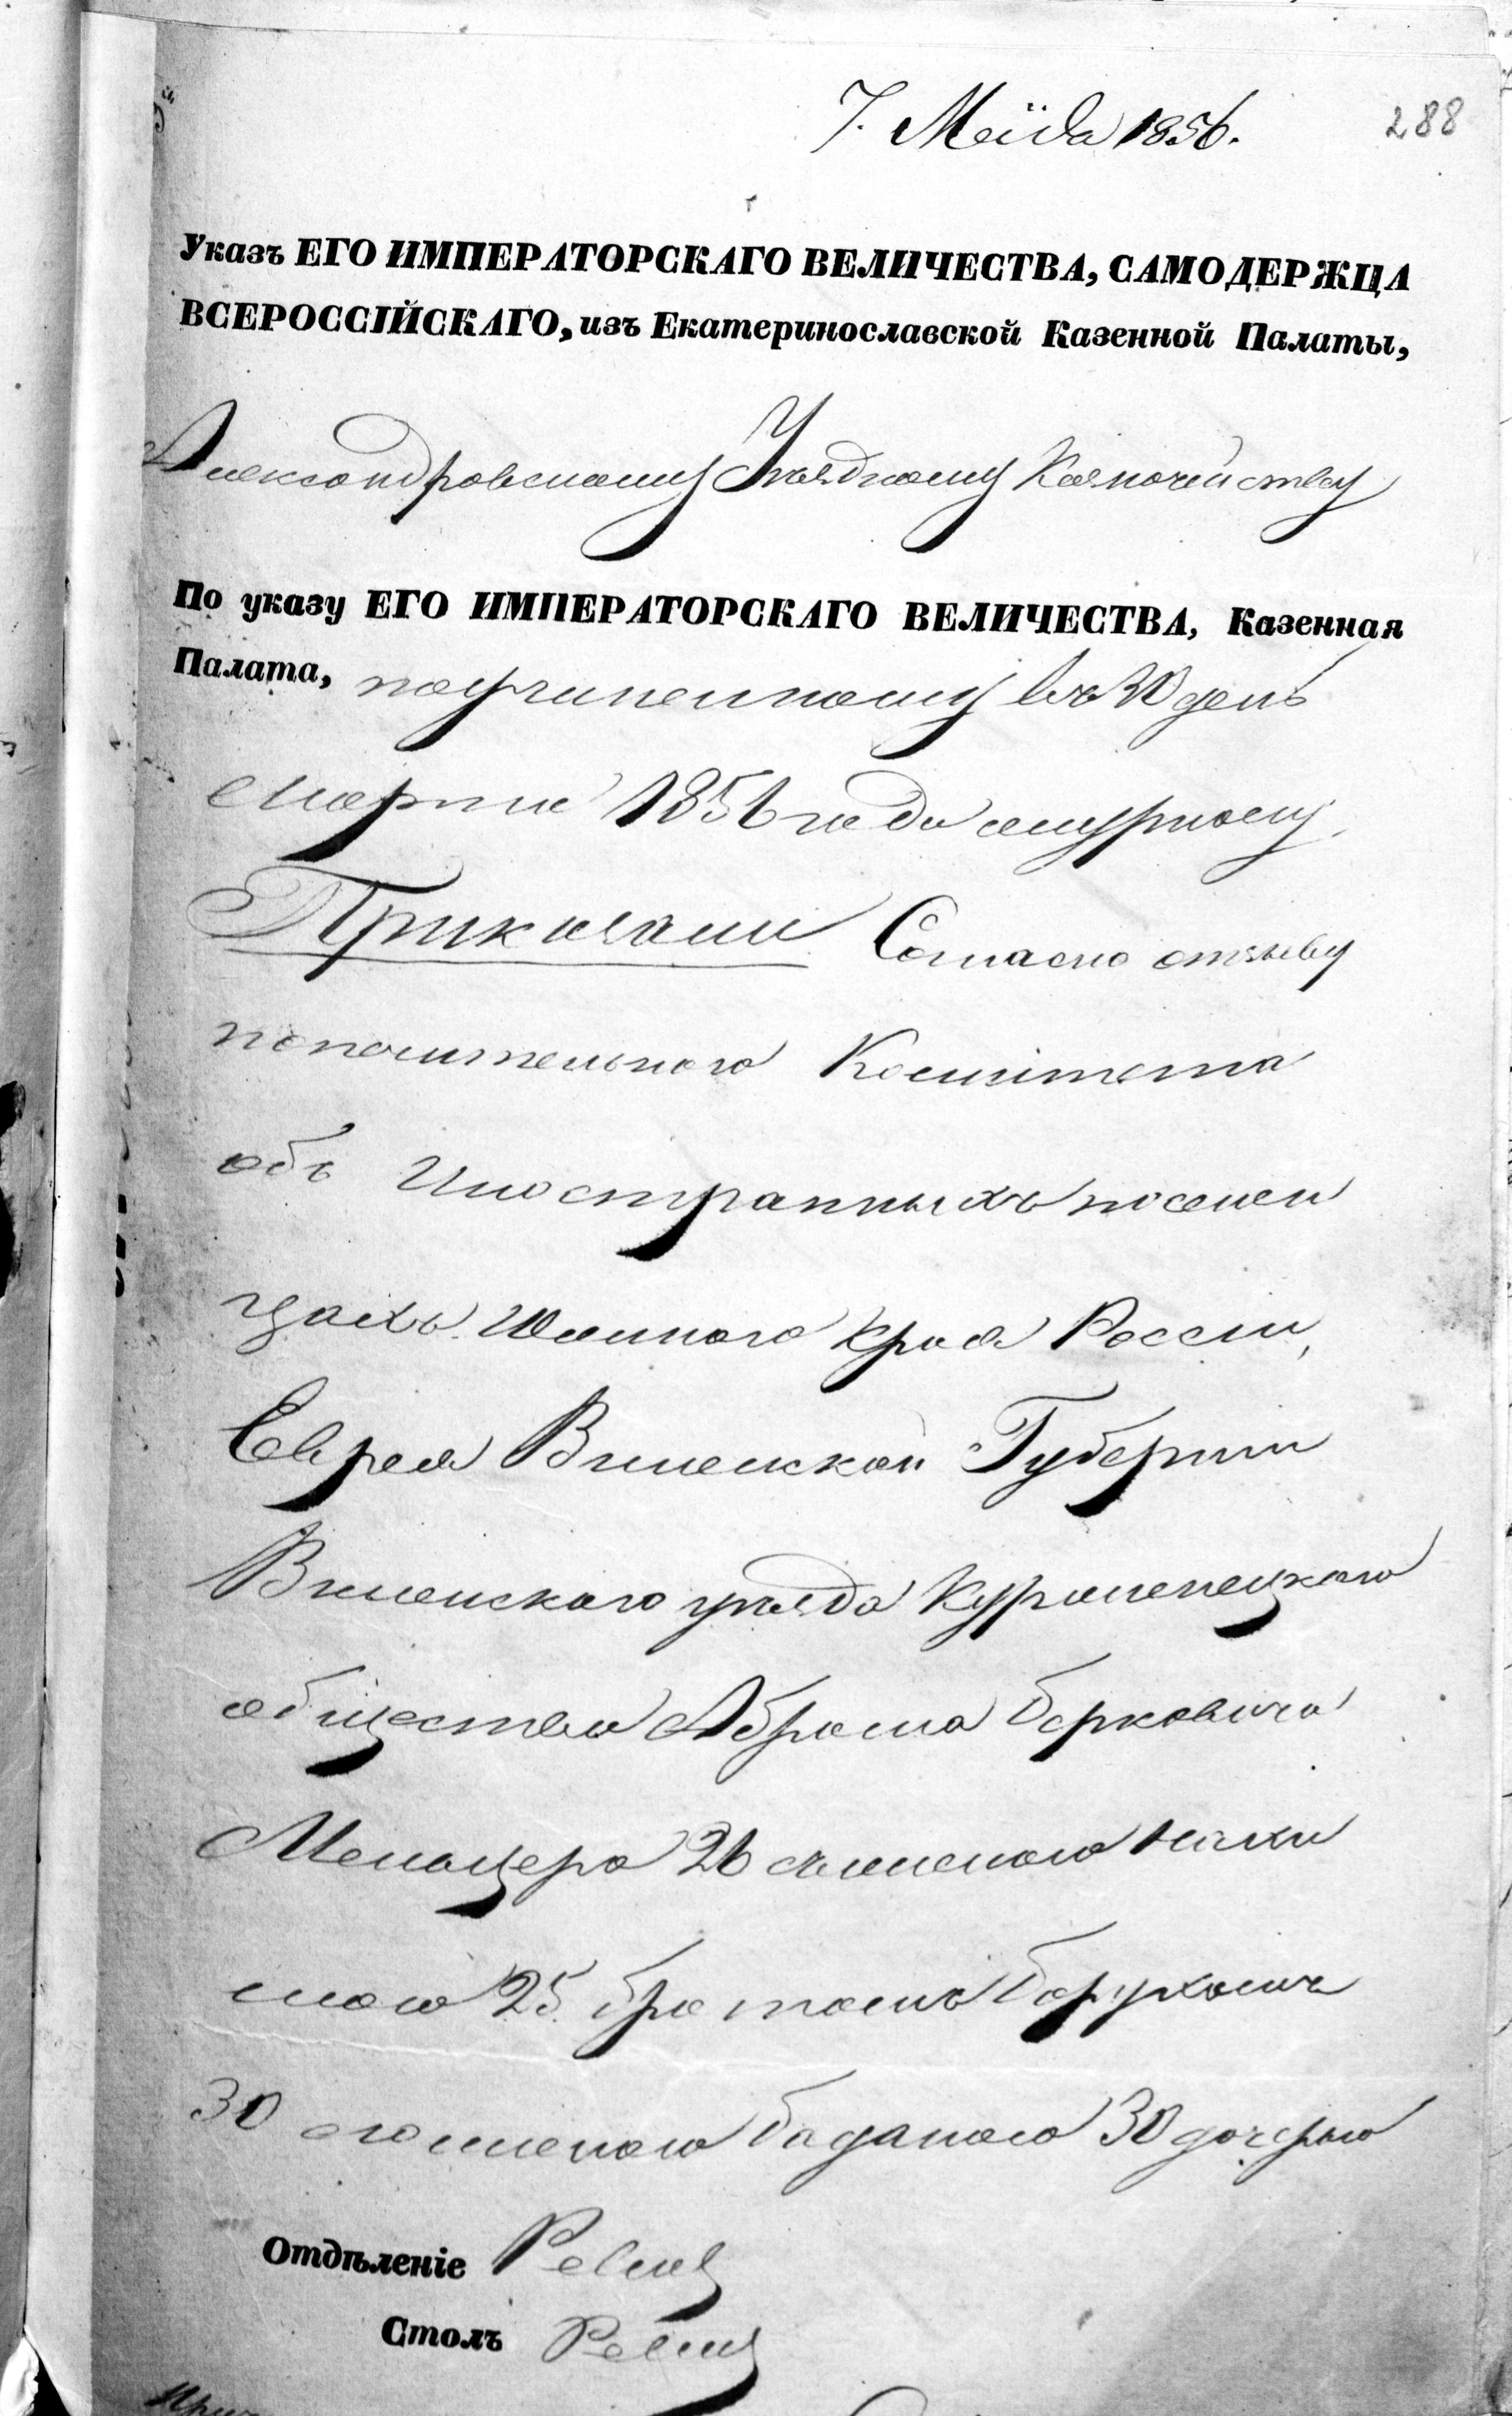 7. Маiя 1856.
288
Указъ ЕГО ИМПЕРАТОРСКАГО ВЕЛИЧЕСТВА, САМОДЕРЖЦА
ВСЕРОССІЙСКАГО, изъ Екатеринославской Казенной Палаты,
Александровскому Уѣздному Казначейству
По указу ЕГО ИМПЕРАТОРСКАГО ВЕЛИЧЕСТВА, Казенная
Палата, по учиненному въ 30 день
марта 1856 года журналу
Приказали Согласно отзыву
попечительнаго Комитета
объ Иностранныхъ поселен
цахъ Южнаго края Россіи,
Еврея Виленской Губерніи
Виленскаго уѣзда Куренецкаго
общества Абрама Берковича
25 братомъ
30 30 дочерью
Отдѣленіе Ревиз
Столъ Ревиз